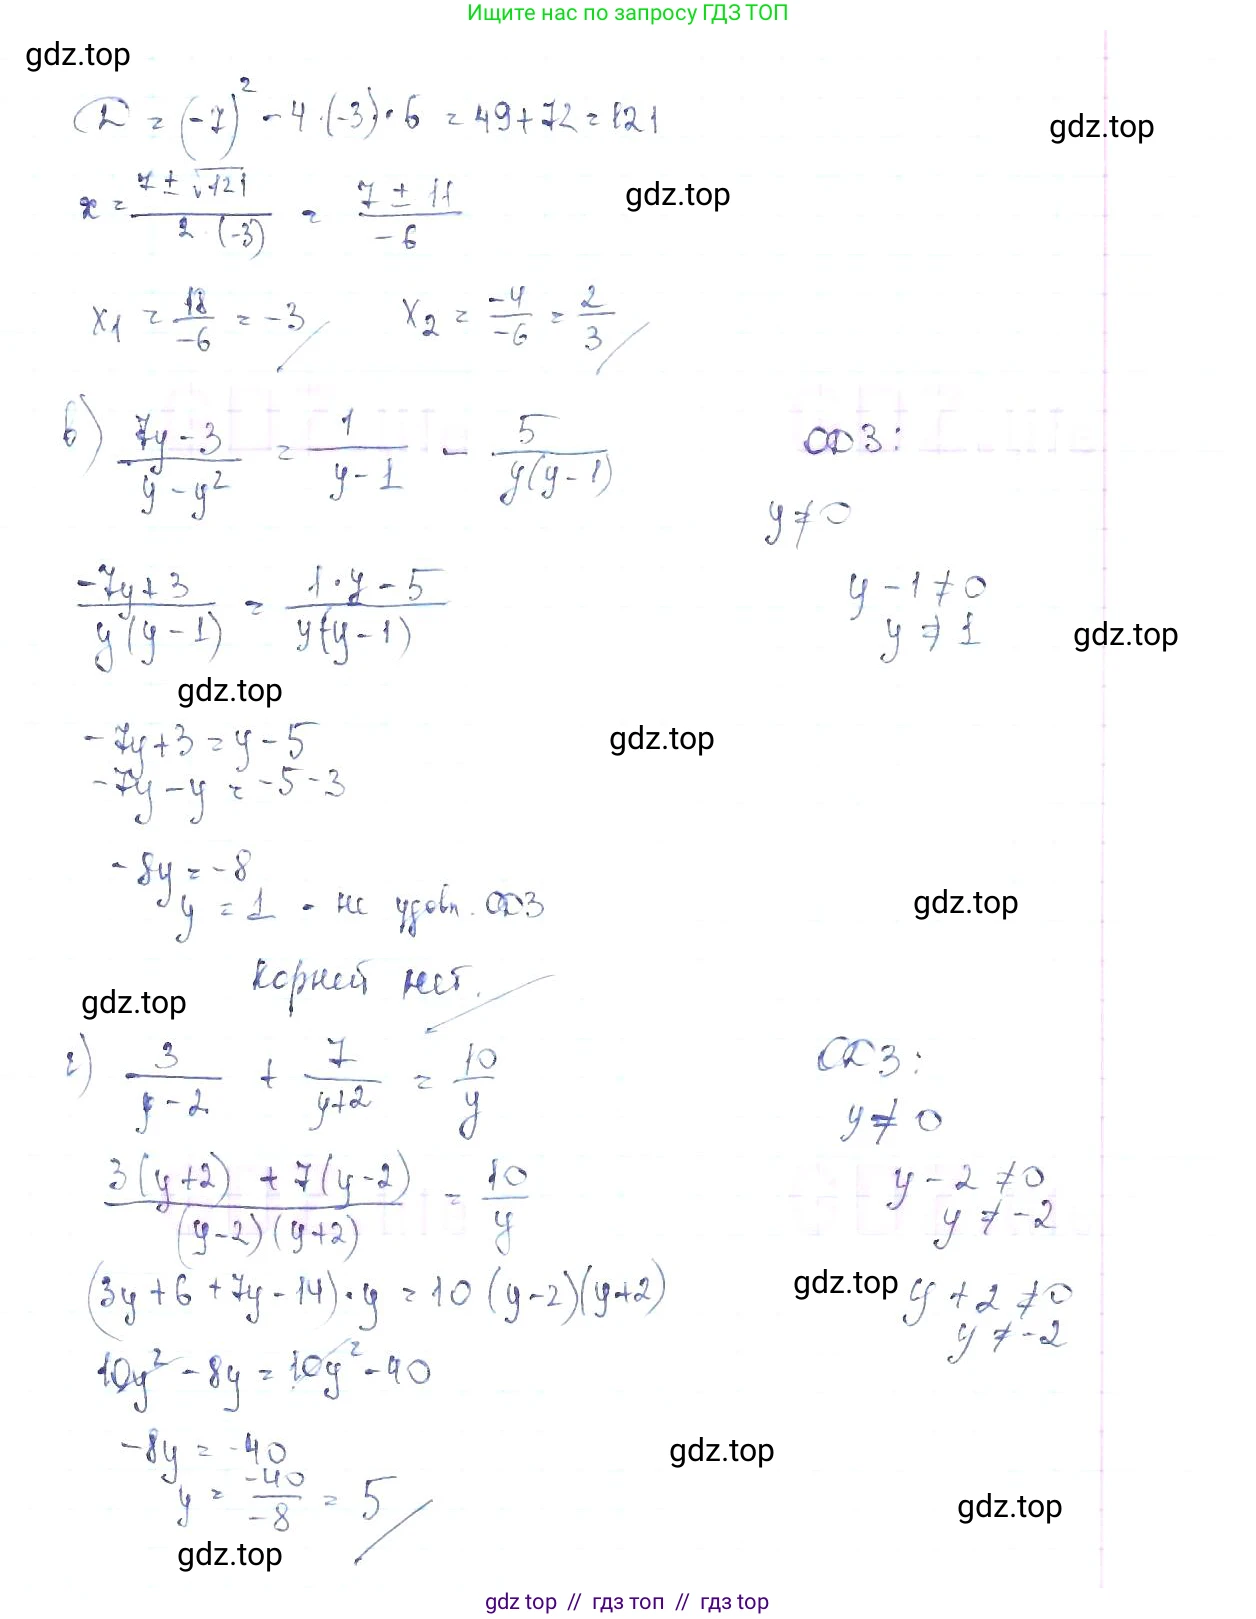 Ищите нас по запросу ГДЗ ТОП
gdz.top
D = (-7)² - 4·(-3)·6 = 49+72=121
gdz.top
x = 7 ± √121 / 2·(-3) = 7 ± 11 / -6
gdz.top
x₁ = 18/-6 = -3 x₂ = -4/-6 = 2/3
в) 7y-3 / y-y² = 1 / y-1 - 5 / y(y-1) ОДЗ:
y≠0
-7y+3 / y(y-1) = 1·y-5 / y(y-1) y-1≠0
y≠1 gdz.top
gdz.top
-7y+3=y-5 gdz.top
-7y-y=-5-3
-8y=-8
y=1 - не удовл. ОДЗ gdz.top
Корней нет.
gdz.top
г) 3 / y-2 + 7 / y+2 = 10 / y ОДЗ:
y≠0
3(y+2) + 7(y-2) / (y-2)(y+2) = 10 / y y-2≠0
y≠-2
(3y+6+7y-14)·y=10(y-2)(y+2) gdz.top y+2≠0
y≠-2
10y²-8y=10y²-40
-8y=-40 gdz.top
y = -40/-8 = 5 gdz.top
gdz.top
gdz top // гдз топ // гдз top